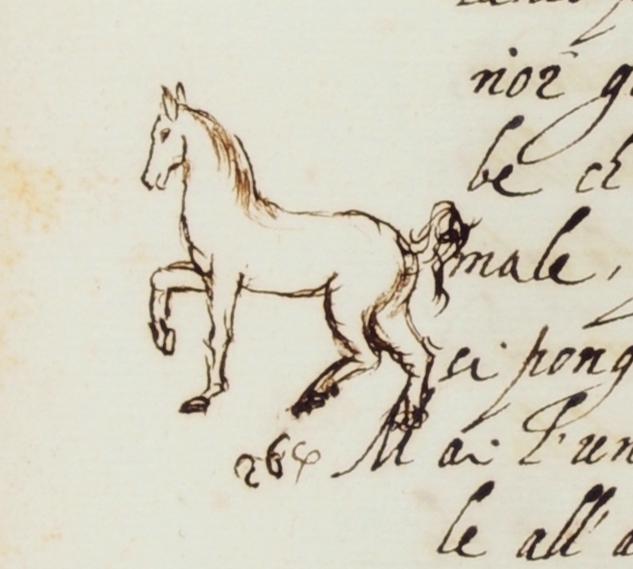 rior g
be ch
male,
si pong
264 Mai l'un
le all' a